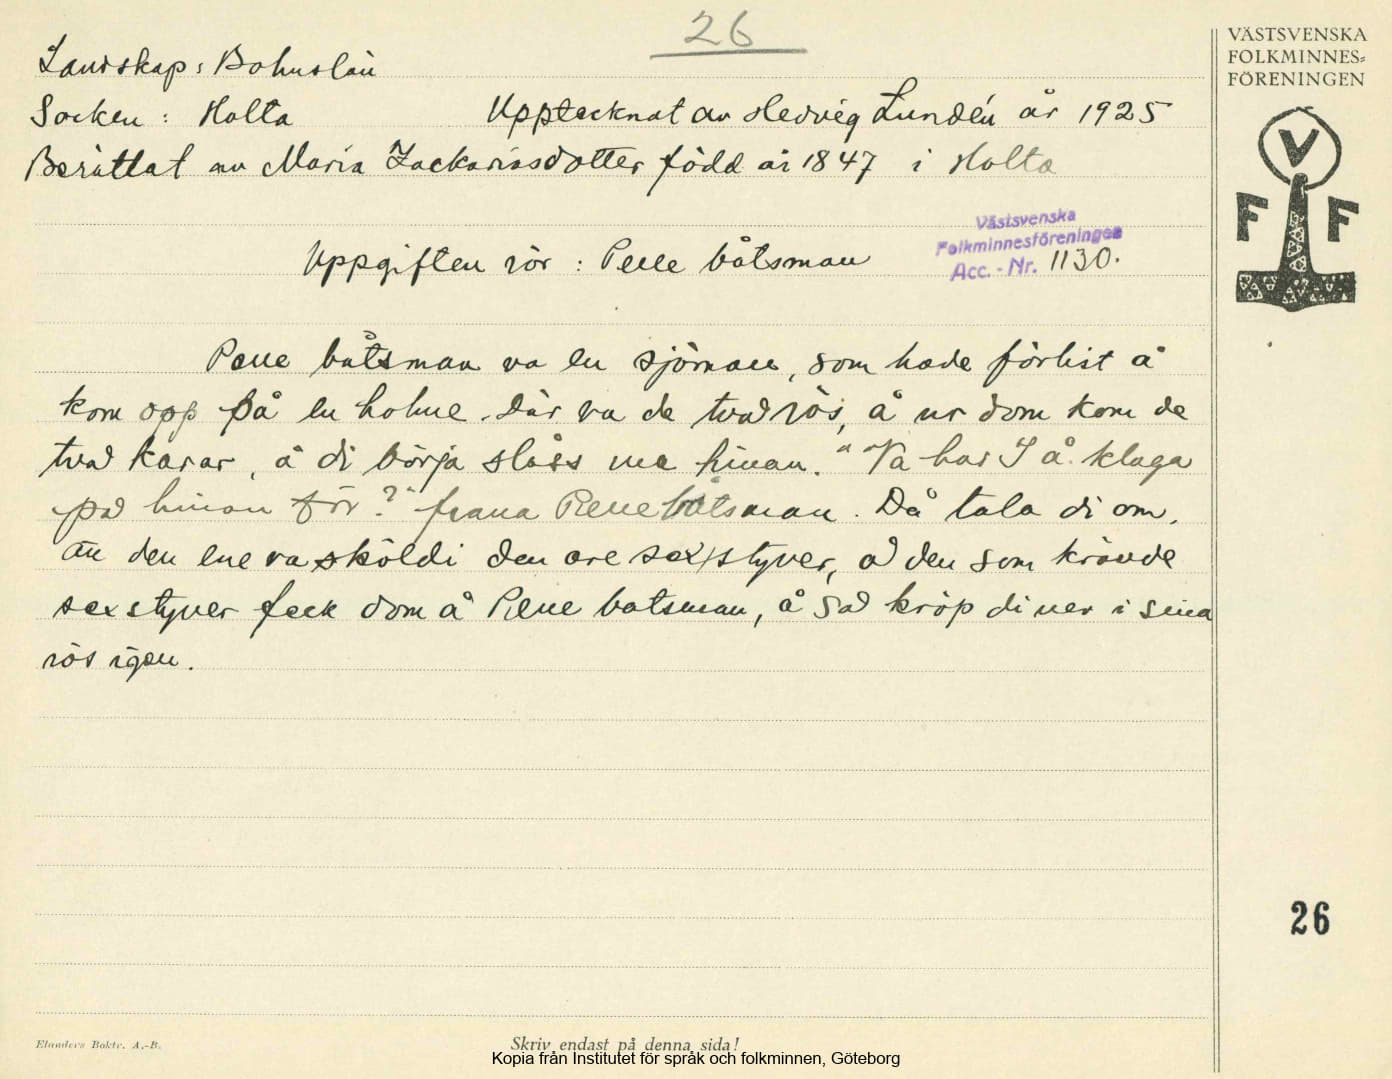 26
VÄSTSVENSKA
FOLKMINNES=
FÖRENINGEN
V
F F
Landskap: Bohuslän
Socken: Holta Upptecknat av Hedvig Lundén år 1925
Berättat av Maria Zackariasdotter född år 1847 i Holta
Västsvenska
Folkminnesföreningen
Acc.-Nr. 1130.
Uppgiften rör: Pelle båtsman
Pelle båtsman va en sjöman, som hade förlist å
kom opp på en holme. Där va de två rös, å ur dom kom de
två karar, å di börja slåss me hinan. "Va har I å klaga
på hinan för?" fråna Pelle båtsman. Då tala di om,
än den ene va sköldi den are sexstyver, å den som krävde
sexstyver feck dom å Pelle batsman, å så kröp di ner i sina
rös igen.
26
Elanders Boktr. A.-B.
Skriv endast på denna sida!
Kopia från Institutet för språk och folkminnen, Göteborg